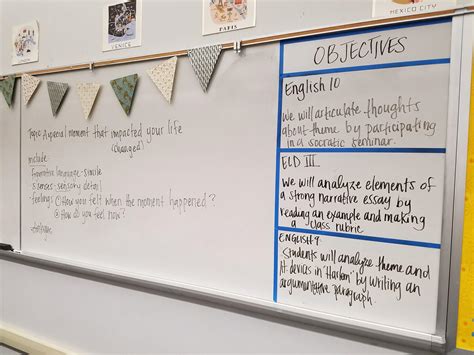 VENICE
MEXICO CITY
Topic: A special moment that impacted your life
(changed)
include:
figurative language - simile
5 senses - sensory detail
-feelings: ① How you felt when the moment happened?
② How do you feel now?
-dialogue
OBJECTIVES
English 10
We will articulate thoughts
about theme by participating
in a socratic seminar.
ELD III
We will analyze elements of
a strong narrative essay by
reading an example and making
a class rubric
ENGLISH 9
Students will analyze theme and
lit devices in "Harlem" by writing an
argumentative paragraph.